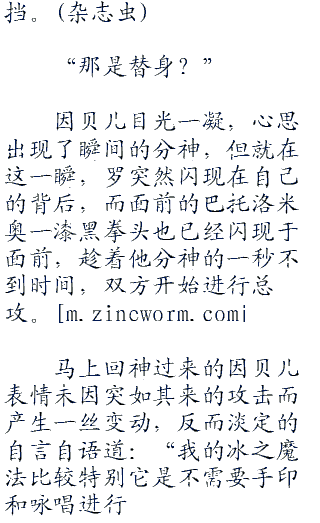 挡。(杂志虫)
“那是替身？”
因贝儿目光一凝，心思
出现了瞬间的分神，但就在
这一瞬，罗突然闪现在自己
的背后，而面前的巴托洛米
奥一漆黑拳头也已经闪现于
面前，趁着他分神的一秒不
到时间，双方开始进行总
攻。[m.zincworm.com|
马上回神过来的因贝儿
表情未因突如其来的攻击而
产生一丝变动，反而淡定的
自言自语道：“我的冰之魔
法比较特别它是不需要手印
和咏唱进行